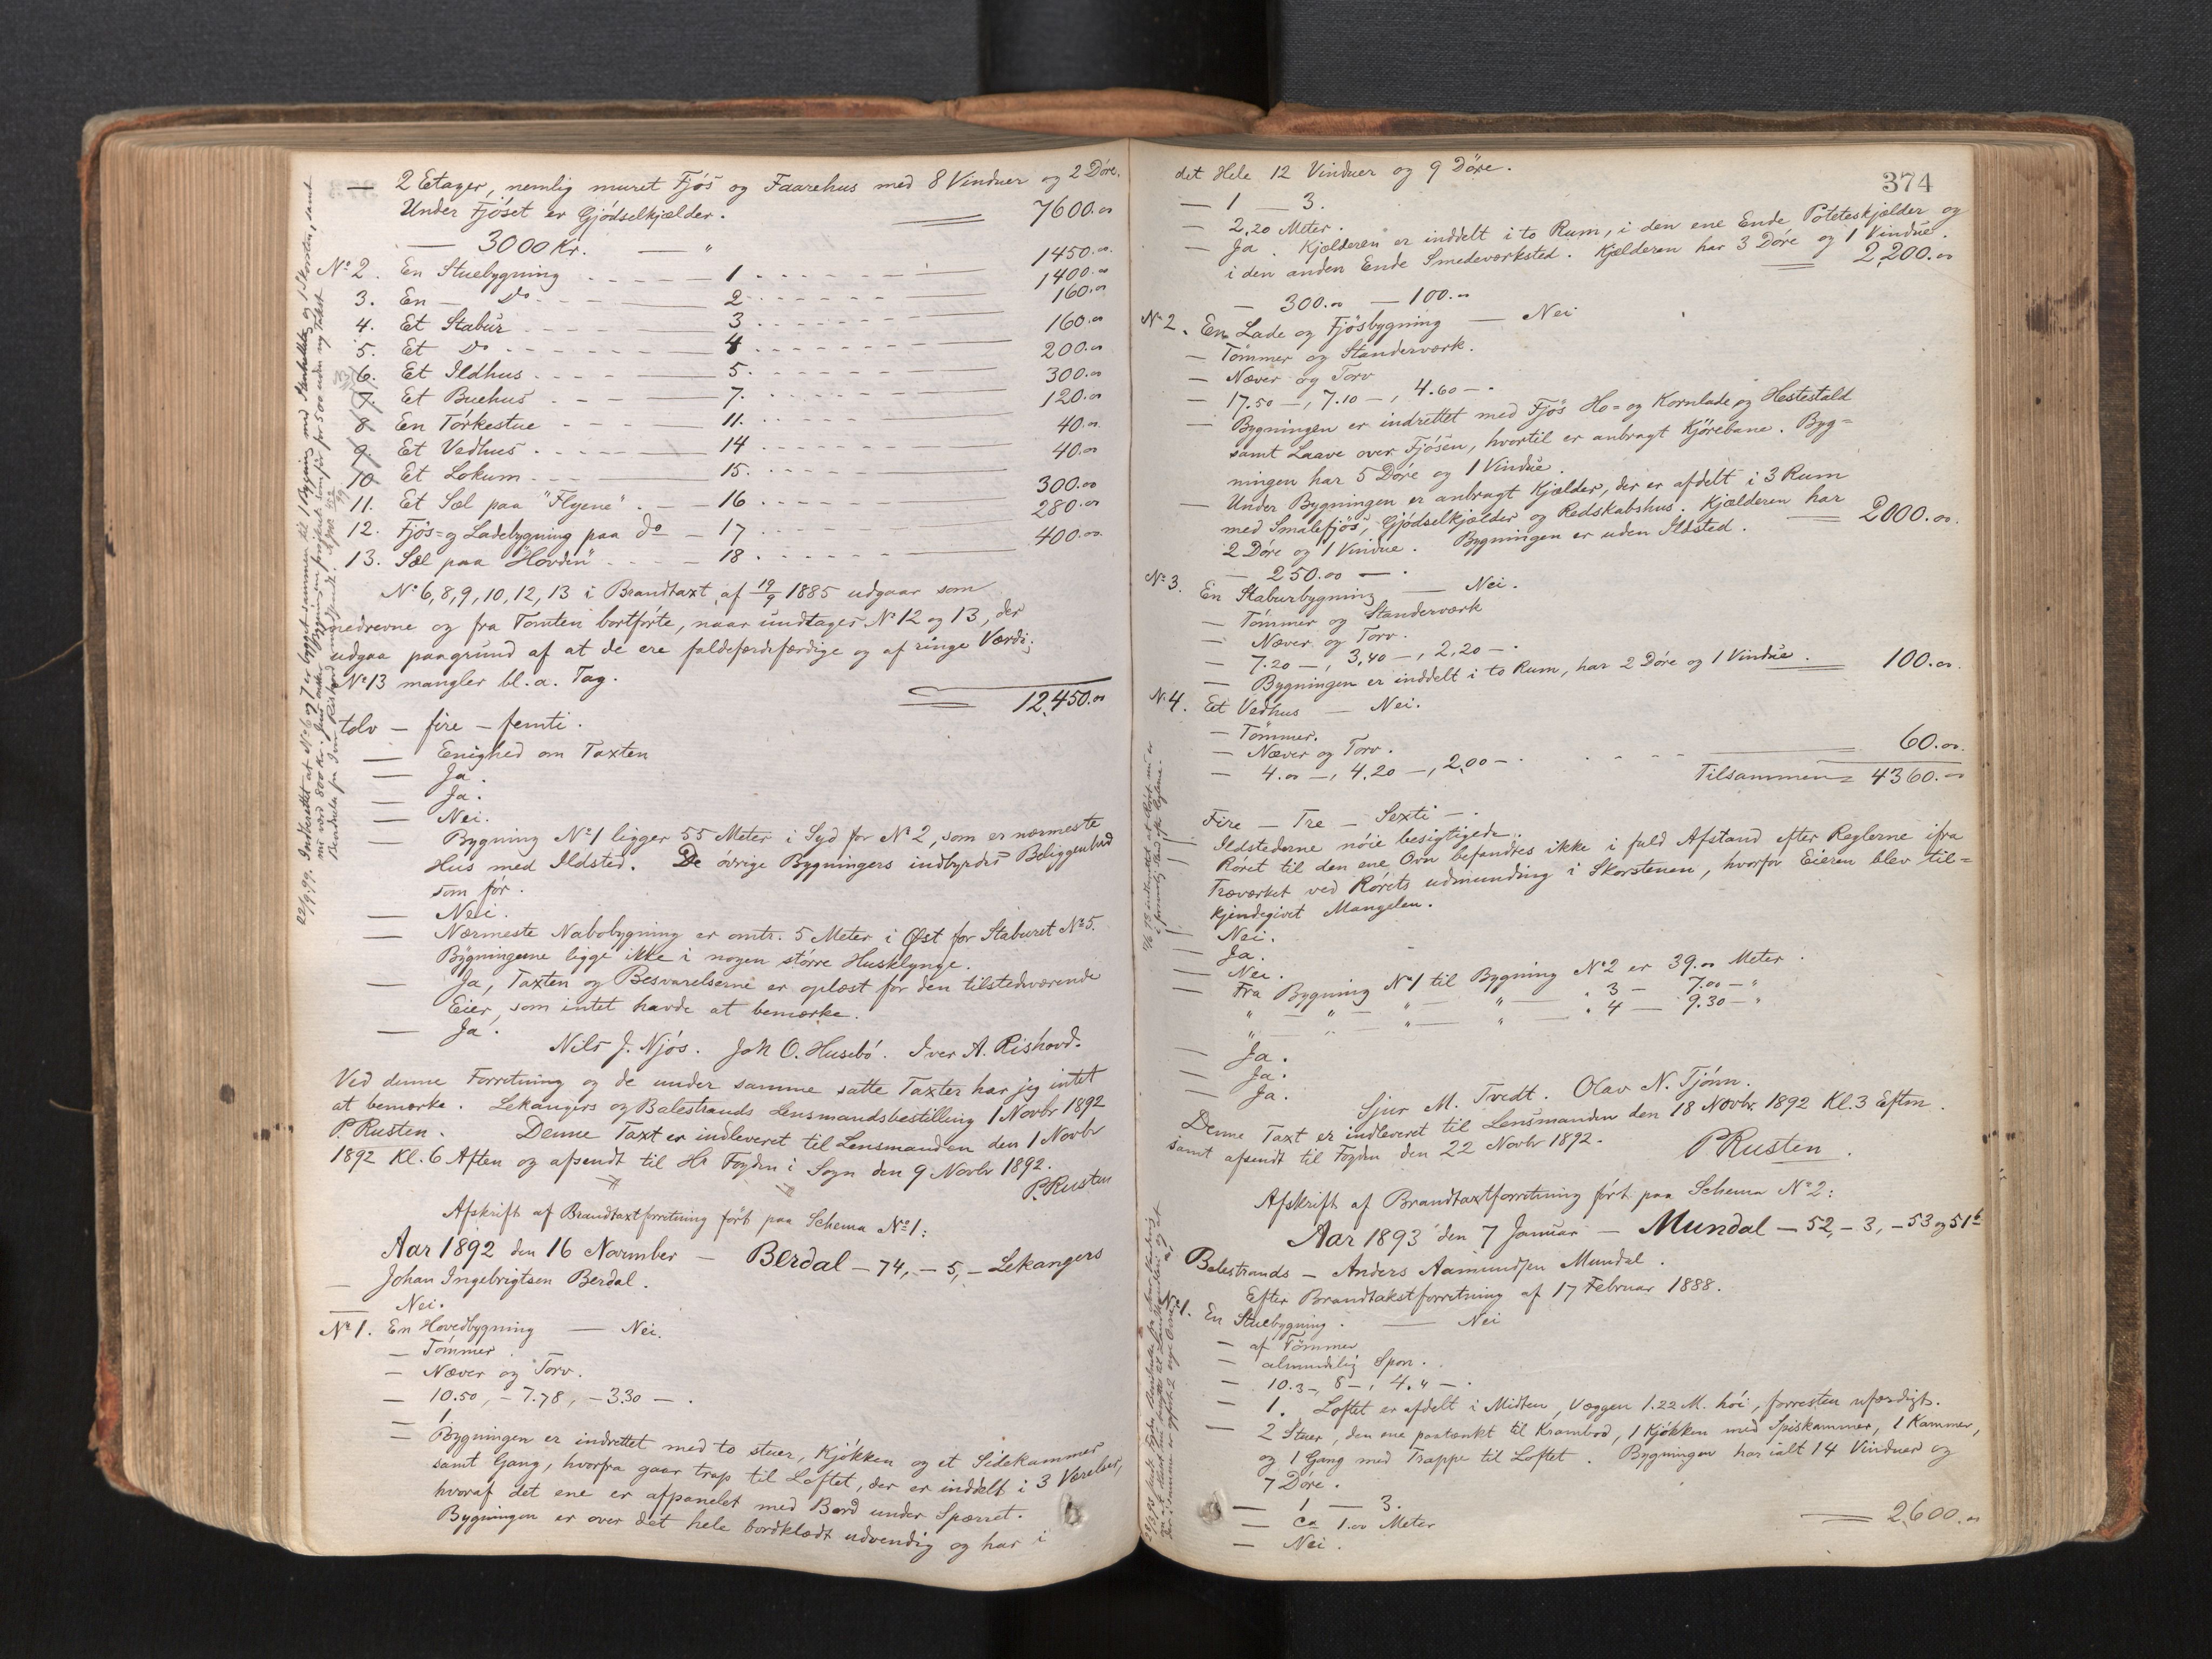 — 2 Etager, nemlig muret Fjós og Faarehus med 8 Vinduer og 2 Dóre.
Under Fjóset er Gjódselkjælder. 7600.00
— 3000 Kr. — "
No 2. En Stuebygning - - - 1 - - - 1450.00
3. En — Do - - - 2 - - - 1400.00
4. Et Stabur - - - 3 - - - 160.00
5. Et Do - - - 4 - - - 160.00
6. Et Ildhus - - - 5. - - - 200.00
7. Et Buehus - - - 7. - - - 300.00
8 En Tórkestue - - - 11. - - - 120.00
9. Et Vedhus - - - 14 - - - 40.00
10 Et Lokum - - - 15. - - - 40.00
11. Et Sæl paa "Flyene" - - 16 - - - 300.00
12. Fjós- og Ladebygning paa do - 17 280.00
13. Sæl paa "Hovden" - - - 18 - - - 400.00
No 6, 8, 9, 10, 12, 13 i Brandtaxt af 19/9 1885 udgaar som
nedrevne og fra Tomten bortfórte, naar undtages No 12 og 13, der
udgaa paagrund af at de ere faldefærdefærdige og af ringe Værdi;
No 13 mangler bl. a. Tag.
12,450.00
tolv — fire — femti.
— Enighed om Taxten
— Ja.
— Ja.
— Nei.
— Bygning No 1 ligger 55 Meter i Syd for No 2, som er nærmeste
Hus med Ildsted. De óvrige Bygningers indbyrdes Beliggenhed
som fór.
— Nei.
— Nærmeste Nabobygning er omtr. 5 Meter i Øst for Staburet No 5.
Bygningerne ligge ikke i nogen stórre Husklynge.
— Ja, Taxten og Besvarelserne er oplæst for den tilstedeværende
Eier, som intet havde at bemærke.
— Ja.
Nils J. Njós. Joh O. Husebó. Iver A. Rishovd.
Ved denne Forretning og de under samme satte Taxter har jeg intet
at bemærke. Lekangers og Balestrands Lensmandsbestilling 1 Novbr 1892
P. Rusten. Denne Taxt er indleveret til Lensmanden den 1 Novbr
1892 Kl. 6 Aften og afsendt til Hr Fogden i Sogn den 9 Novbr 1892.
P. Rusten
Afskrift af Brandtaxtforretning fórt paa Schema No 1:
Aar 1892 den 16 November — Berdal — 74, — 5, — Lekangers
— Johan Ingebrigtsen Berdal.
— Nei.
No 1. En Hovedbygning — Nei.
— Tómmer
— Næver og Torv.
— 10.50, — 7.78, — 3.30 — .
— 1
— Bygningen er indrettet med to stuer, Kjókken og et Sidekammer
samt Gang, hvorfra gaar trap til Loftet, der er inddelt i 3 Værelser,
hvoraf det ene er afpanelet med Bord under Spærret.
Bygningen er over det hele bordklædt udvendig og har i
374
det Hele 12 Vinduer og 9 Dóre.
— 1 — 3.
— 2,20 Meter.
— Ja. Kjælderen er inddelt i to Rum, i den ene Ende Poteteskjælder og
i den anden Ende Smedeværksted. Kjælderen har 3 Dóre og 1 Vindue.
2,200.00
— 300.00 — 100.00
No 2. En Lade og Fjósbygning — Nei
— Tómmer og Standerværk.
— Næver og Torv
— 17.50 —, 7.10 —, 4.60 — .
— Bygningen er indrettet med Fjós Ho- og Kornlade og Hestestald
samt Laave over Fjósen, hvortil er anbragt Kjórebane. Byg-
ningen har 5 Dóre og 1 Vindue.
— Under Bygningen er anbragt Kjælder, der er afdelt i 3 Rum
med Smalefjós, Gjódselkjælder og Redskabshus. Kjælderen har
2 Dóre og 1 Vindue. Bygningen er uden Ildsted. 2000.00.
— 250.00 — .
No 3. En Staburbygning — Nei.
— Tómmer og Standerværk
— Næver og Torv.
— 7.20 —, 3,40 —, 2,20 — .
— Bygningen er inddelt i to Rum, har 2 Dóre og 1 Vindue. 100.00.
N. 4. Et Vedhus — Nei.
— Tómmer.
— Næver og Torv.
— 4.00 —, 4.20 —, 2,00 — . 60.00.
Tilsammen 4360.00
Fire — Tre — Sexti — .
— Ildstederne nóie besigtigede.
Róret til den ene Ovn befandtes ikke i fuld Afstand efter Reglerne ifra
Træværket ved Rórets udmunding i Skorstenen, hvorfor Eieren blev til-
kjendegivet Mangelen.
— Nei.
— Ja.
— Nei.
— Fra Bygning No 1 til Bygning No 2 er 39.00 Meter.
" — " — " — " — " 3 — 7.00 — "
" — " — " — " — " 4 — 9.30 — "
— Ja.
— Ja.
— Ja.
Sjur M. Tvedt. Olav N. Tjónn.
Denne Taxt er indleveret til Lensmanden den 18 Novbr. 1892 Kl. 3 Eftm.
samt afsendt til Fogden den 22 Novbr 1892. P Rusten.
Afskrift af Brandtaxtforretning fórt paa Schema No 2:
Aar 1893 den 7 Januar — Mundal — 52, — 3, — 53 og 51b
Balestrands — Anders Aamundsen Mundal.
Efter Brandtakstforretning af 17 Februar 1888.
No 1. En Stuebygning. — Nei
— af Tómmer
— almindelig Spon.
— 10.3 —, 8 —, 4.4 — .
— 1. Loftet er afdelt i Midten, Væggen 1.22 M. hói, forresten ufærdigt.
— 2 Stuer, den ene paatænkt til Krambod, 1 Kjókken med Spiskammer, 1 Kammer,
og 1 Gang med Trappe til Loftet. Bygningen har ialt 14 Vinduer og
7 Dóre.
— 1 — 3.
— Ca 1.00 Meter
— Nei. 2600.00